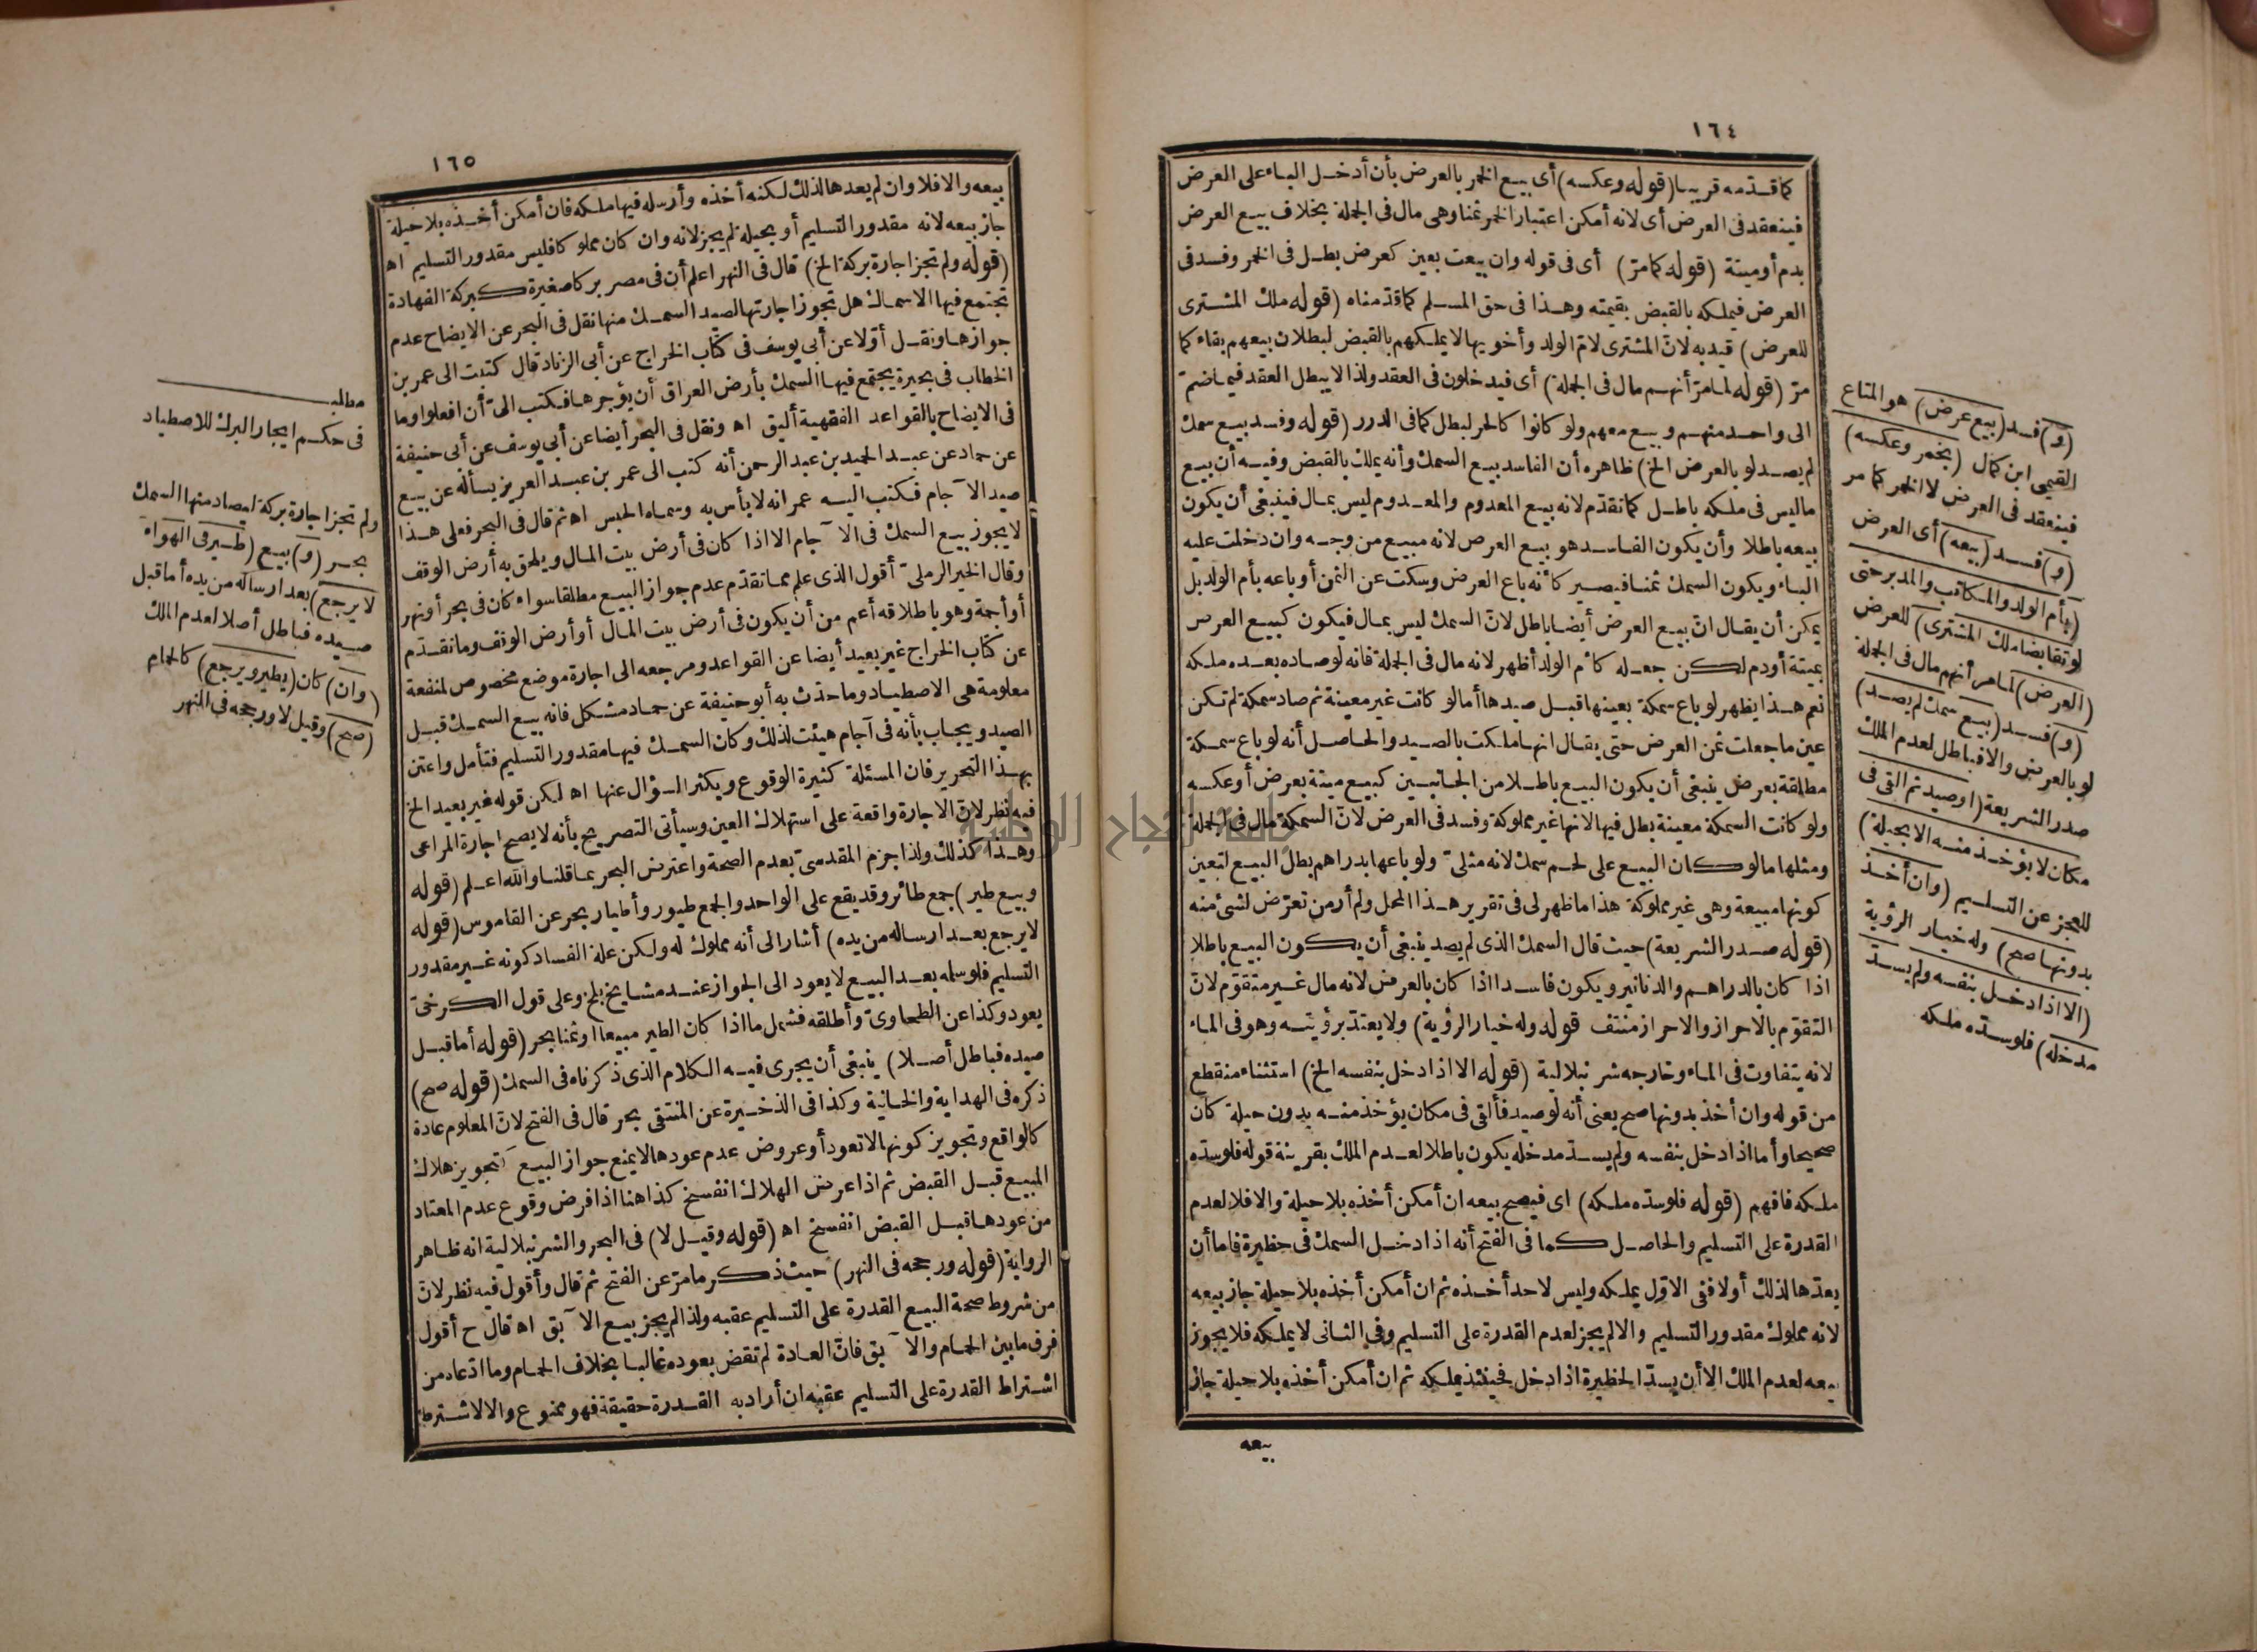 ١٦٤
كما قدّمه قريبا (قوله وعكسه) أى بيع الخمر بالعرض بأن أدخل الباء على العرض
فينعقد فى العرض أى لانه أمكن اعتبار الخمر ثمنا وهى مال فى الجملة بخلاف بيع العرض
بدم أو ميتة (قوله كما مرّ) أى فى قوله وان بيعت بعين كعرض بطل فى الخمر وفسد فى
العرض فيملكه بالقبض بقيمته وهذا فى حق المسلم كما قدّمناه (قوله ملك المشترى
للعرض) قيد به لانّ المشترى لامّ الولد وأخويها لا يملكهم بالقبض لبطلان بيعهم بقاء كما
مرّ (قوله لما مرّ أنهم مال فى الجملة) أى فيدخلون فى العقد ولذا لا يبطل العقد فيما ضمّ
الى واحد منهم وبيع معهم ولو كانوا كالحر لبطل كما فى الدرر (قوله وفسد بيع سمك
لم يصد لو بالعرض الخ) ظاهره أن الفاسد بيع السمك وأنه يملك بالقبض وفيه أن بيع
ما ليس فى ملكه باطل كما تقدّم لانه بيع المعدوم والمعدوم ليس بمال فينبغى أن يكون
بيعه باطلا وأن يكون الفاسد هو بيع العرض لانه مبيع من وجه وان دخلت عليه
الباء ويكون السمك ثمنا فيصير كأنه باع العرض وسكت عن الثمن أو باعه بأم الولد بل
يمكن أن يقال انّ بيع العرض أيضا باطل لانّ السمك ليس بمال فيكون كبيع العرض
بميتة أو دم لكن جعله كأم الولد أظهر لانه مال فى الجملة فانه لو صاده بعده ملكه
نعم هذا يظهر لو باع سمكة بعينها قبل صيدها أما لو كانت غير معينة ثم صاد سمكة لم تكن
عين ما جعلت ثمن العرض حتى يقال انها ملكت بالصيد والحاصل أنه لو باع سمكة
مطلقة بعرض ينبغى أن يكون البيع باطلا من الجانبين كبيع ميتة بعرض أو عكسه
ولو كانت السمكة معينة بطل فيها لانها غير مملوكة وفسد فى العرض لانّ السمكة مال فى الجملة
ومثلها ما لو كان البيع على لحم سمك لانه مثلىّ ولو باعها بدراهم بطل البيع لتعين
كونها مبيعة وهى غير مملوكة هذا ما ظهر لى فى تقرير هذا المحل ولم أر من تعرّض لشئ منه
(قوله صدر الشريعة) حيث قال السمك الذى لم يصد ينبغى أن يكون البيع باطلا
اذا كان بالدراهم والدنانير ويكون فاسدا اذا كان بالعرض لانه مال غير متقوّم لانّ
التقوّم بالاحراز والاحراز منتف قوله وله خيار الرؤية) ولا يعتدّ برؤيته وهو فى الماء
لانه يتفاوت فى الماء وخارجه شرنبلالية (قوله الا اذا دخل بنفسه الخ) استثناء منقطع
من قوله وان أخذ بدونها صح يعنى أنه لو صيد فألقى فى مكان يؤخذ منه بدون حيلة كان
صحيحا وأما اذا دخل بنفسه ولم يسدّ مدخله يكون باطلا لعدم الملك بقرينة قوله فلو سدّه
ملكه فافهم (قوله فلو سدّه ملكه) اى فيصح بيعه ان أمكن أخذه بلا حيلة والا فلا لعدم
القدرة على التسليم والحاصل كما فى الفتح أنه اذا دخل السمك فى حظيرة فاما أن
يعدّها لذلك أو لا ففى الاوّل يملكه وليس لاحد أخذه ثم ان أمكن أخذه بلا حيلة جاز بيعه
لانه مملوك مقدور التسليم والا لم يجز لعدم القدرة على التسليم وفى الثانى لا يملكه فلا يجوز
بيعه لعدم الملك الا أن يسدّ الحظيرة اذا دخل فحينئذ يملكه ثم ان أمكن أخذه بلا حيلة جاز
بيعه
(و) فسد (بيع عرض) هو المتاع
القيمى ابن كمال (بخمر وعكسه)
فينعقد فى العرض لا الخمر كما مر
(و) فسد (بيعه) أى العرض
(بأم الولد والمكاتب والمدبر حتى
لو تقابضا ملك المشترى) للعرض
(العرض) لما مر أنهم مال فى الجملة
(و) فسد (بيع سمك لم يصد)
لو بالعرض والا فباطل لعدم الملك
صدر الشريعة (أو صيد ثم القى فى
مكان لا يؤخذ منه الا بحيلة)
للعجز عن التسليم (وان أخذ
بدونها صح) وله خيار الرؤية
(الا اذا دخل بنفسه ولم يسدّ
مدخله) فلو سدّه ملكه
١٦٥
بيعه والا فلا وان لم يعدها لذلك لكنه أخذه وأرسله فيها ملكه فان أمكن أخذه بلا حيلة
جاز بيعه لانه مقدور التسليم أو بحيلة لم يجز لانه وان كان مملوكا فليس مقدور التسليم اه
(قوله ولم تجز اجارة بركة الخ) قال فى النهر اعلم أن فى مصر بركا صغيرة كبركة الفهادة
تجتمع فيها الاسماك هل تجوز اجارتها لصيد السمك منها نقل فى البحر عن الايضاح عدم
جوازها ونقل أوّلا عن أبى يوسف فى كتاب الخراج عن أبى الزناد قال كتبت الى عمر بن
الخطاب فى بحيرة يجتمع فيها السمك بأرض العراق أن يؤجرها فكتب الىّ أن افعلوا وما
فى الايضاح بالقواعد الفقهية أليق اه ونقل فى البحر أيضا عن أبى يوسف عن أبى حنيفة
عن حماد عن عبد الحميد بن عبد الرحمن أنه كتب الى عمر بن عبد العزيز يسأله عن بيع
صيد الآجام فكتب اليه عمر انه لا بأس به وسماه الحبس اه ثم قال فى البحر فعلى هذا
لا يجوز بيع السمك فى الآجام الا اذا كان فى أرض بيت المال ويلحق به أرض الوقف
وقال الخير الرملىّ أقول الذى علم مما تقدّم عدم جواز البيع مطلقا سواء كان فى بحر أو نهر
أو أجمة وهو باطلاقه أعم من أن يكون فى أرض بيت المال أو أرض الوقف وما تقدّم
عن كتاب الخراج غير بعيد أيضا عن القواعد ومرجعه الى اجارة موضع مخصوص لمنفعة
معلومة هى الاصطياد وما حدّث به أبو حنيفة عن حماد مشكل فانه بيع السمك قبل
الصيد ويجاب بأنه فى آجام هيئت لذلك وكان السمك فيها مقدور التسليم فتأمل واعتن
بهذا التحرير فان المسئلة كثيرة الوقوع ويكثر السؤال عنها اه لكن قوله غير بعيد الخ
فيه نظر لانّ الاجارة واقعة على استهلاك العين وسيأتى التصريح بأنه لا يصح اجارة المراعى
وهذا كذلك ولذا جزم المقدسىّ بعدم الصحة واعترض البحر بما قلنا والله اعلم (قوله
وبيع طير) جمع طائر وقد يقع على الواحد والجمع طيور وأطيار بحر عن القاموس (قوله
لا يرجع بعد ارساله من يده) أشار الى أنه مملوك له ولكن علة الفساد كونه غير مقدور
التسليم فلو سلمه بعد البيع لا يعود الى الجواز عند مشايخ بلخ وعلى قول الكرخىّ
يعود وكذا عن الطحاوىّ وأطلقه فشمل ما اذا كان الطير مبيعا أو ثمنا بحر (قوله أما قبل
صيده فباطل أصلا) ينبغى أن يجرى فيه الكلام الذى ذكرناه فى السمك (قوله صح)
ذكره فى الهداية والخانية وكذا فى الذخيرة عن المنتقى بحر قال فى الفتح لانّ المعلوم عادة
كالواقع وتجويز كونها لا تعود أو عروض عدم عودها لا يمنع جواز البيع كتجويز هلاك
المبيع قبل القبض ثم اذا عرض الهلاك انفسخ كذا هنا اذا فرض وقوع عدم المعتاد
من عودها قبل القبض انفسخ اه (قوله وقيل لا) فى البحر والشرنبلالية انه ظاهر
الرواية (قوله ورجحه فى النهر) حيث ذكر ما مرّ عن الفتح ثم قال وأقول فيه نظر لانّ
من شروط صحة البيع القدرة على التسليم عقبه ولذا لم يجز بيع الآبق اه قال ح أقول
فرق ما بين الحمام والآبق فانّ العادة لم تقض بعوده غالبا بخلاف الحمام وما ادّعاه من
اشتراط القدرة على التسليم عقبه ان أراد به القدرة حقيقة فهو ممنوع والا لاشترط
مطلب
فى حكم ايجار البرك للاصطياد
ولم تجز اجارة بركة ليصاد منها السمك
بحر (و) بيع (طير فى الهواء
لا يرجع) بعد ارساله من يده أما قبل
صيده فباطل أصلا لعدم الملك
(وان) كان (يطير ويرجع) كالحمام
(صح) وقيل لا ورجحه فى النهر
جامعة النجاح الوطنية